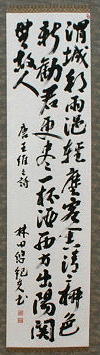 渭城朝雨浥輕塵客舍青青柳色
新勸君更盡一杯酒西出陽關
無故人
唐王維之詩
林田